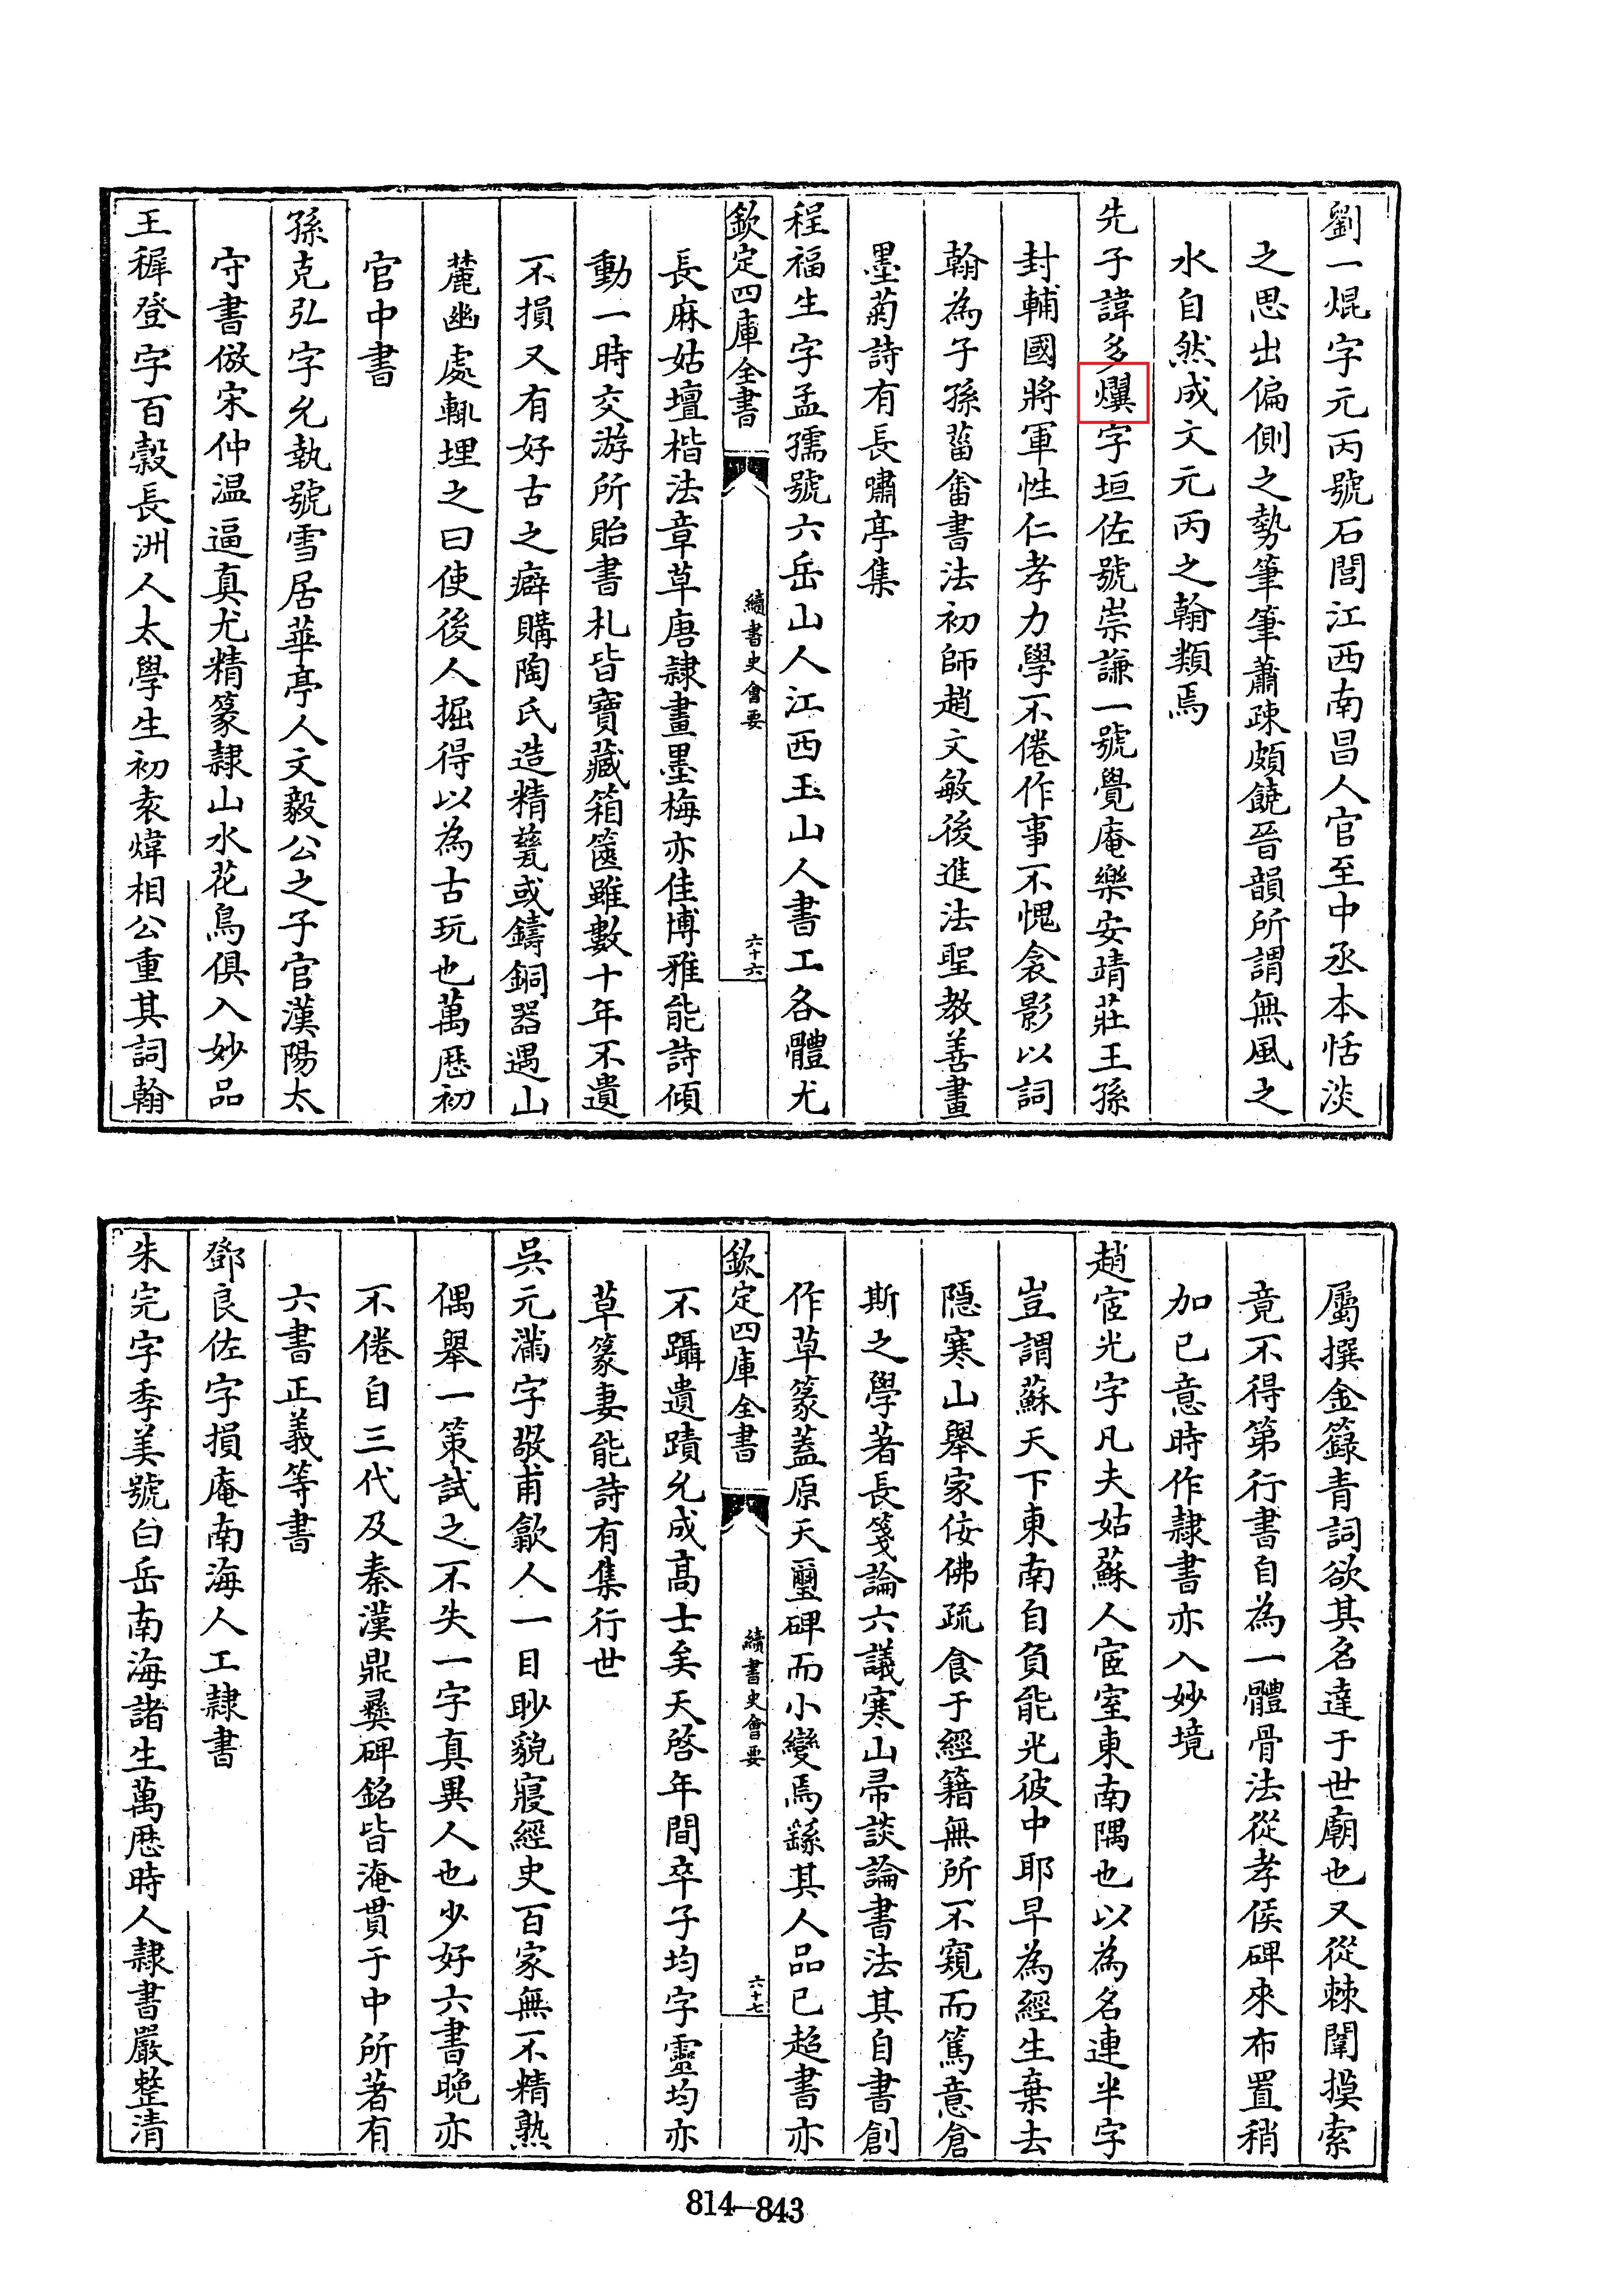 劉一焜字元丙號石閭江西南昌人官至中丞本恬淡
之思出偏側之勢筆筆蕭疎頗饒晉韻所謂無風之
水自然成文元丙之翰類焉
先子諱多字垣佐號崇謙一號覺庵樂安靖莊王孫
封輔國將軍性仁孝力學不倦作事不愧衾影以詞
翰為子孫菑畬書法初師趙文敏後進法聖教善畫
墨菊詩有長嘯亭集
程福生字孟孺號六岳山人江西玉山人書工各體尤
欽定四庫全書
續書史會要
六十六
長麻姑壇楷法章草唐隸畫墨梅亦佳博雅能詩傾
動一時交游所貽書札皆寶藏箱篋雖數十年不遺
不損又有好古之癖購陶氏造精甆或鑄銅器遇山
麓幽處輙埋之曰使後人掘得以為古玩也萬厯初
官中書
孫克弘字允執號雪居華亭人文毅公之子官漢陽太
守書倣宋仲温逼真尤精篆隸山水花鳥俱入妙品
王穉登字百穀長洲人太學生初袁煒相公重其詞翰
屬撰金籙青詞欲其名達于世廟也又從棘闈摸索
竟不得第行書自為一體骨法從孝侯碑來布置稍
加已意時作隸書亦入妙境
趙宧光字凡夫姑蘇人宧室東南隅也以為名連半字
豈謂蘇天下東南自負能光彼中耶早為經生棄去
隱寒山舉家佞佛疏食于經籍無所不窺而篤意倉
斯之學著長箋論六議寒山帚談論書法其自書創
作草篆蓋原天璽碑而小變焉繇其人品已超書亦
欽定四庫全書
續書史會要
六十七
不躡遺蹟允成高士矣天啓年間卒子均字靈均亦
草篆妻能詩有集行世
吳元滿字敬甫歙人一目眇貌寢經史百家無不精熟
偶舉一策試之不失一字真異人也少好六書晚亦
不倦自三代及秦漢鼎彝碑銘皆淹貫于中所著有
六書正義等書
鄧良佐字損庵南海人工隸書
朱完字季美號白岳南海諸生萬厯時人隸書嚴整清
814-843